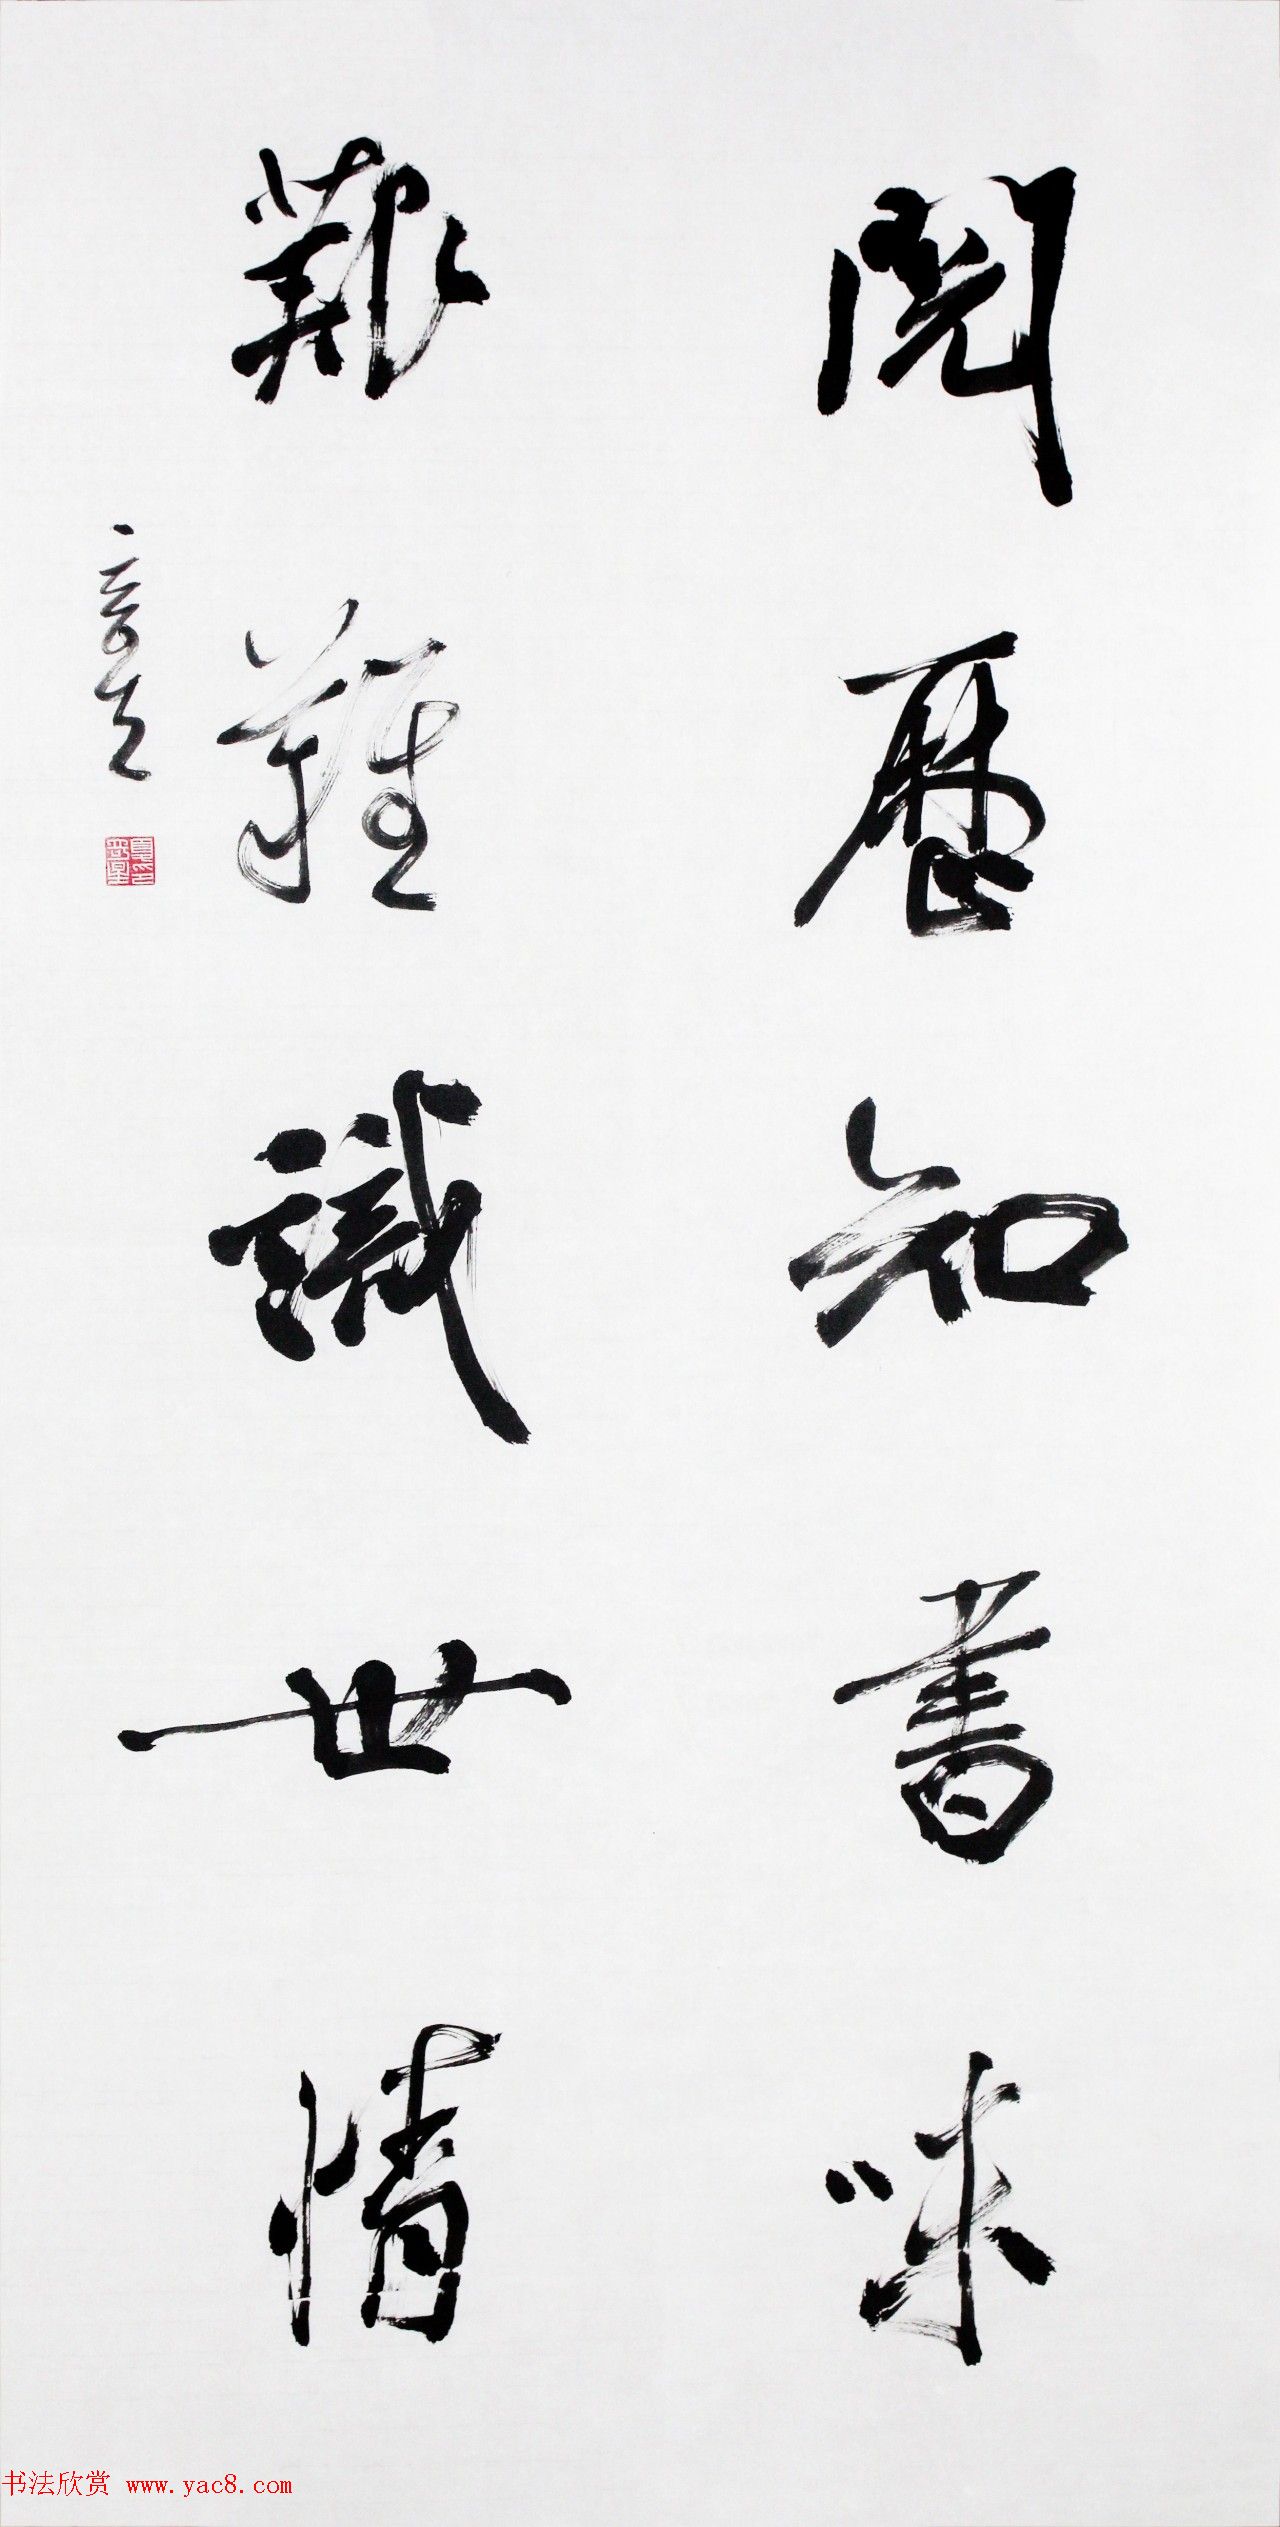 閱歷知書味
艱難識世情
书法欣赏 www.yac8.com